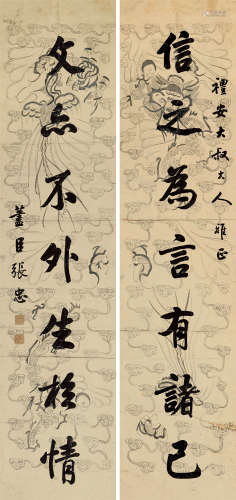 禮安大叔大人 雅正
信之為言有諸己
文亦不外生於情
藎臣張忠